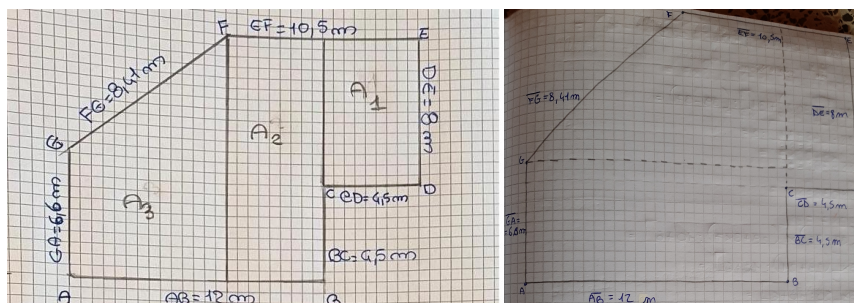 F
EF=10,5m
E
FG=8,41m
A1
DE=8m
A2
G
GA=6,6m
A3
C
CD=4,5m
D
BC=4,5m
A
AB=12m
B
F
EF=10,5m
E
FG=8,41m
DE=8m
G
C
CD=4,5m
BC=4,5m
A
B
AB=12 m